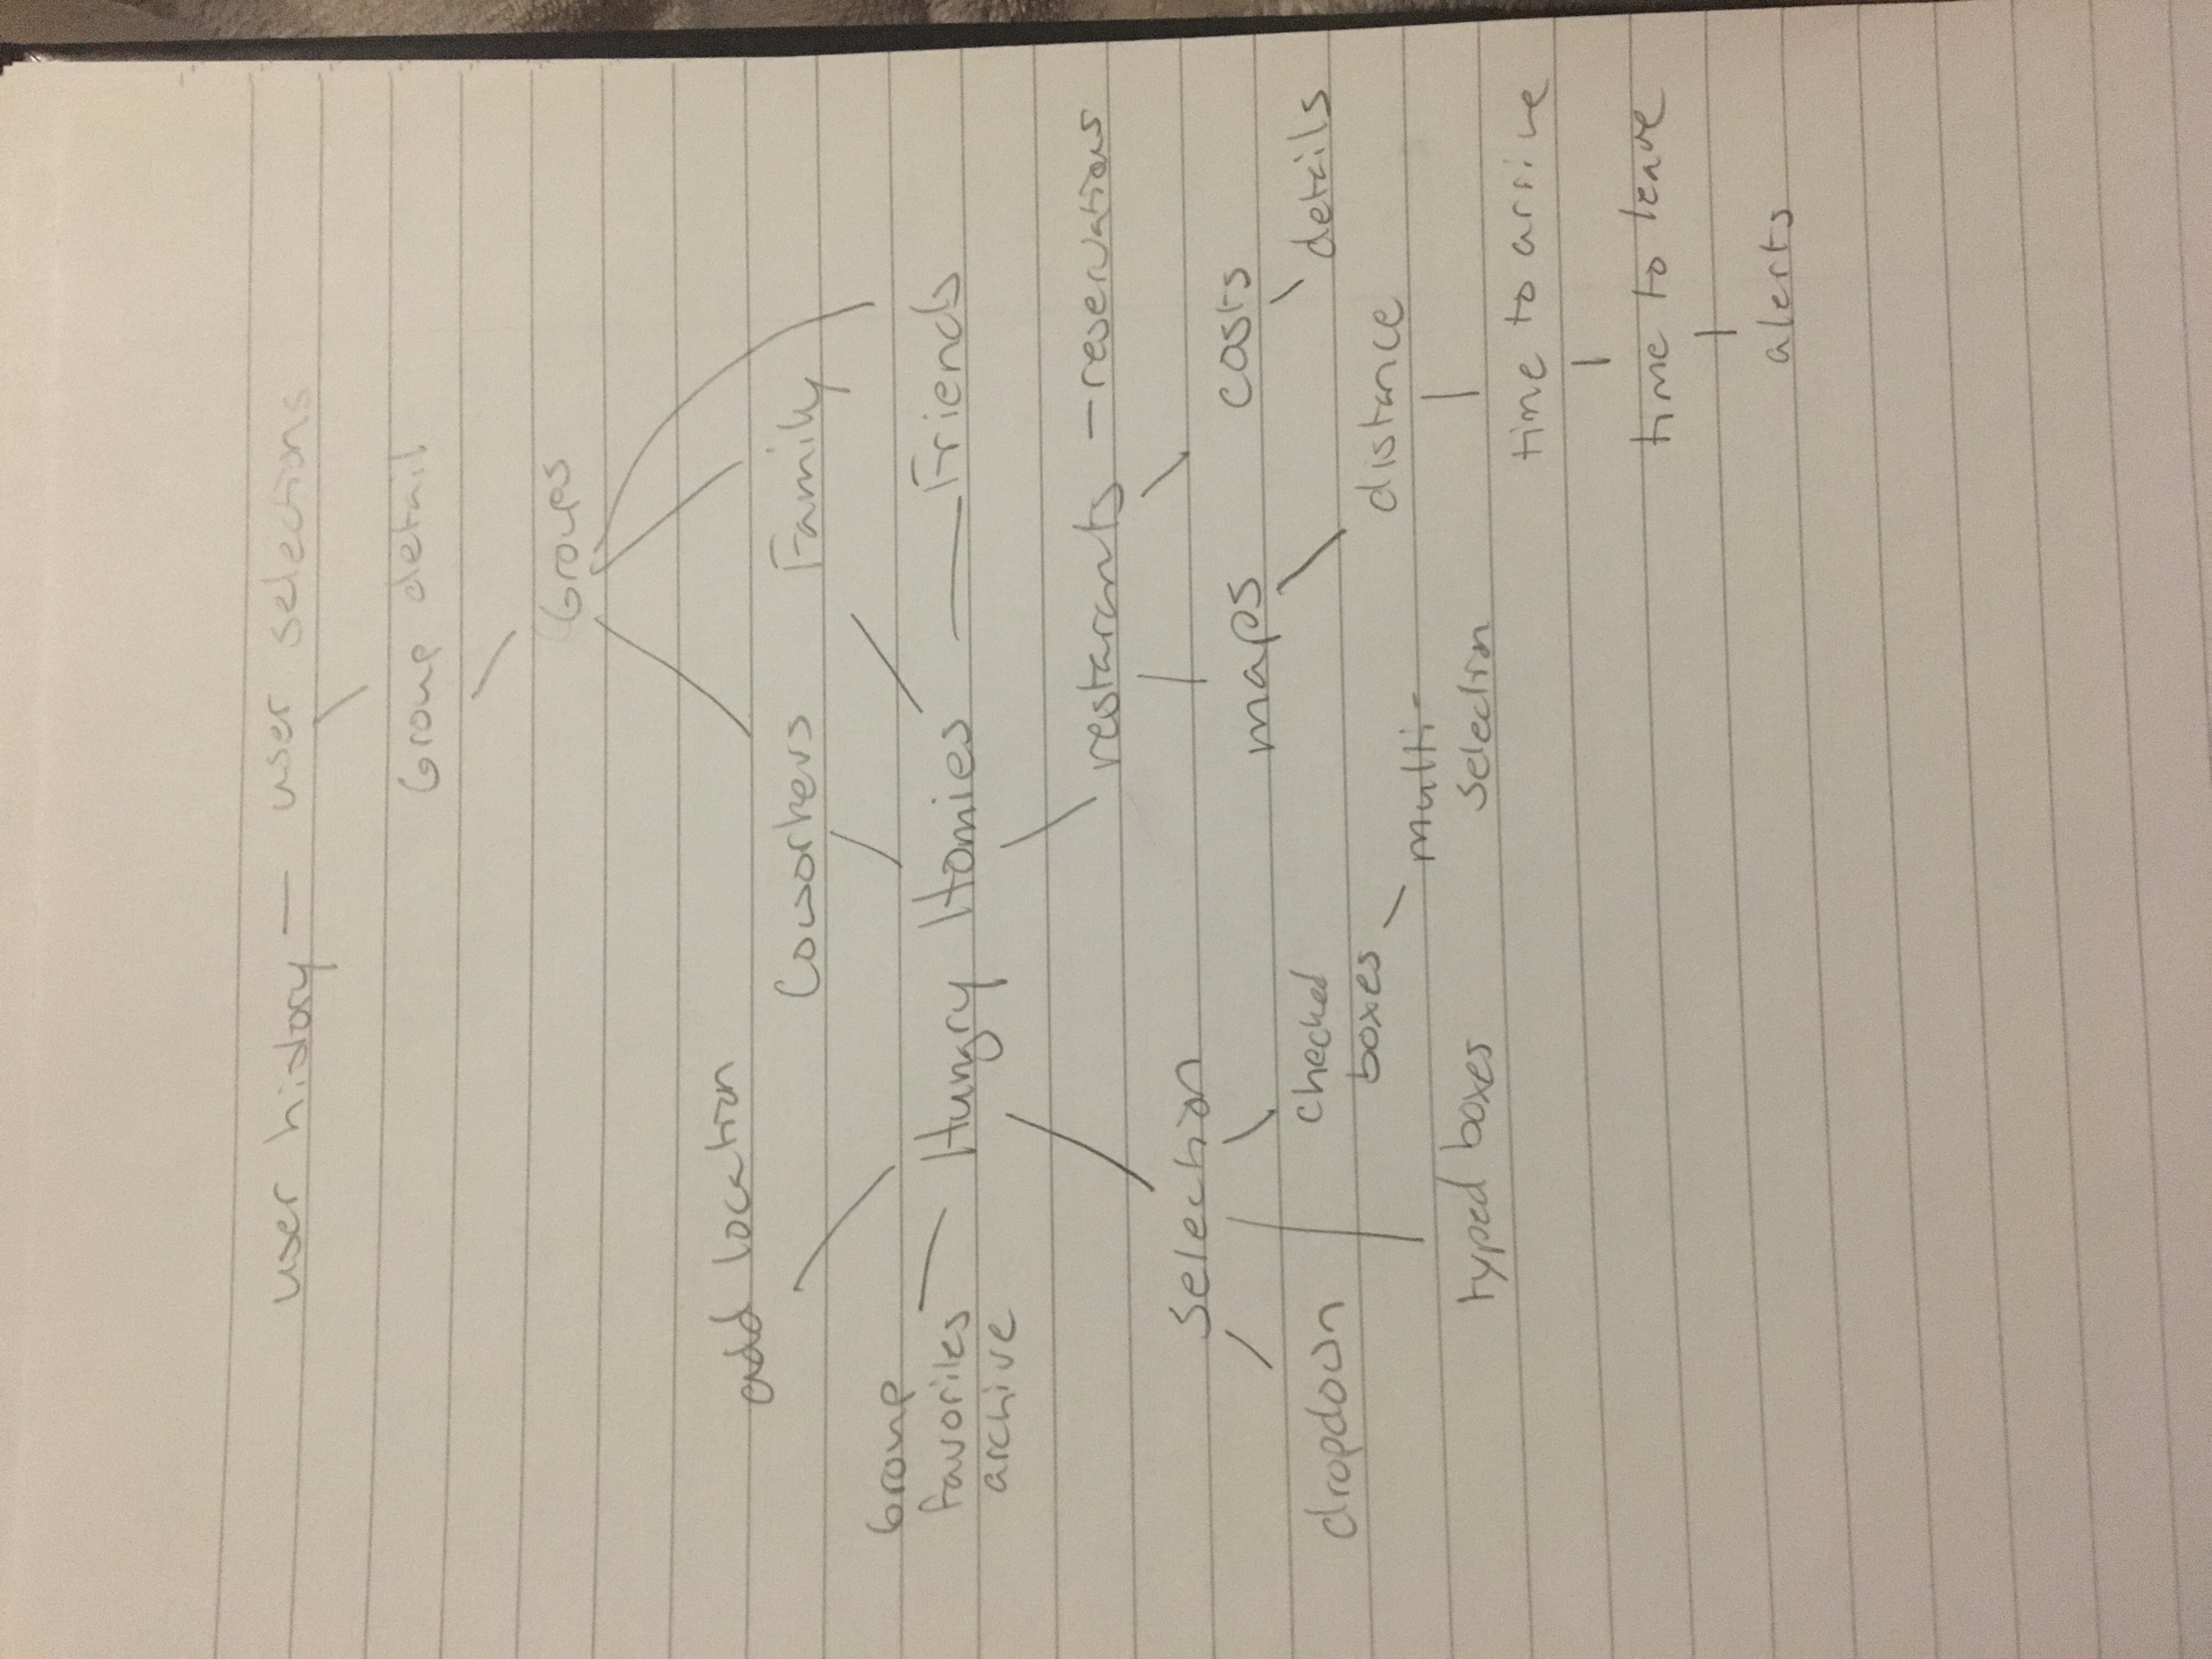 user history — user selections
Group detail
Groups
add location
Coworkers Family
Group
favorites
archive
Hungry Homies — Friends
restarants — reservations
Selection
maps costs
dropdown checked
boxes
details
distance
multi-
Selection
typed boxes
time to arrive
time to leave
alerts